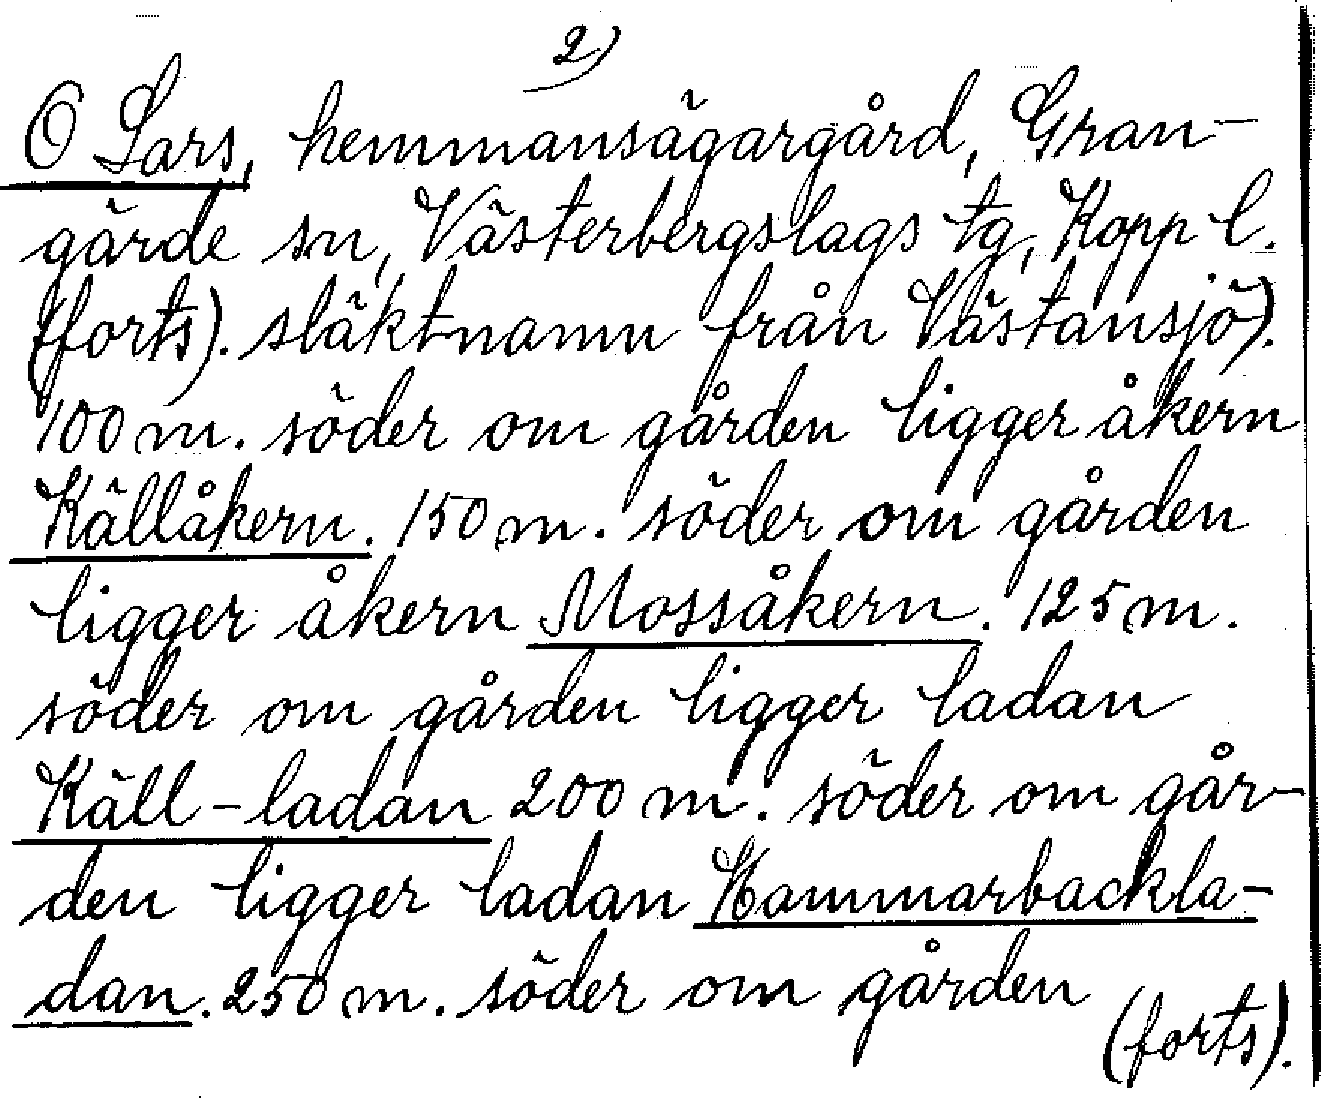 2)
O Lars, hemmansägargård, Gran-
gärde sn, Västerbergslags tg, Kopp l.
(forts). släktnamn från Västansjö).
100 m. söder om gården ligger åkern
Källåkern. 150 m. söder om gården
ligger åkern Mossåkern. 125 m.
söder om gården ligger ladan
Käll-ladan 200 m. söder om går-
den ligger ladan Hammarbackla-
dan. 250 m. söder om gården
(forts).